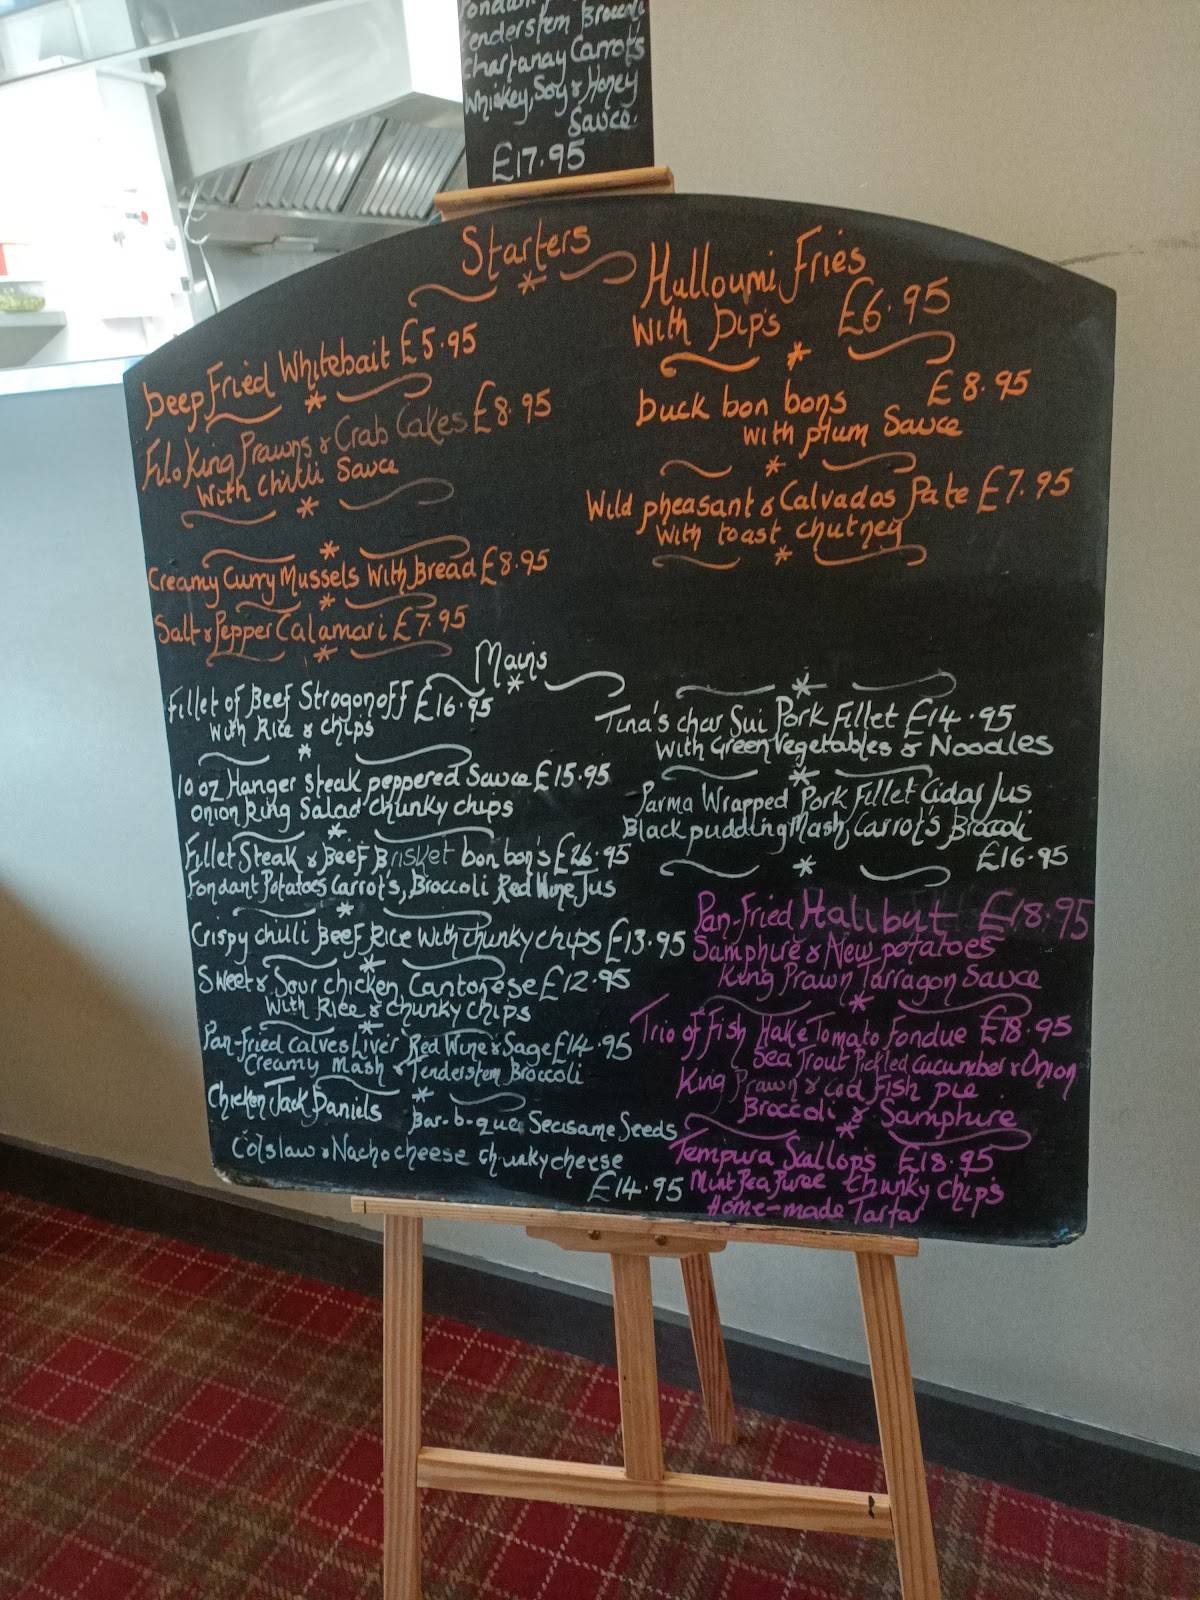 Tenderstem Broccoli
Chartanay Carrot's
Whiskey, Soy & Honey
Sauce.
£17.95
Starters
Deep Fried Whitebait £5.95
Filo King Prawns & Crab Cakes £8.95
With Chilli Sauce
Creamy Curry Mussels With Bread £8.95
Salt & Pepper Calamari £7.95
Halloumi Fries
With Dip's £6.95
Duck bon bons £8.95
With plum Sauce
Wild pheasant & Calvados Pate £7.95
With toast chutney
Mains
Fillet of Beef Strogonoff £16.95
With Rice & chips
10 oz Hanger Steak peppered Sauce £15.95
Onion Ring Salad Chunky chips
Fillet Steak & Beef Brisket bon bon's £26.95
Fondant Potatoes Carrot's, Broccoli Red Wine Jus
Crispy chilli Beef Rice With Chunky chips £13.95
Sweet & Sour chicken Cantonese £12.95
With Rice & chunky chips
Pan-fried calves Liver Red Wine & Sage £14.95
Creamy Mash & Tenderstem Broccoli
Chicken Jack Daniels Bar-b-que Secisame Seeds
Colslaw & Nacho cheese chunky cheese
£14.95
Tina's char Sui Pork Fillet £14.95
With Green Vegetables & Noodles
Parma Wrapped Pork Fillet Cidar Jus
Black pudding Mash, Carrot's Broccoli
£16.95
Pan-Fried Halibut £18.95
Samphire & New potatoes
King Prawn Tarragon Sauce
Trio of Fish Hake Tomato Fondue £18.95
Sea Trout Pickled cucumber & Onion
King Prawn & Cod Fish pie
Broccoli & Samphire
Tempura Scallop's £18.95
Mint Pea Puree Chunky Chip's
Home-made Tartar